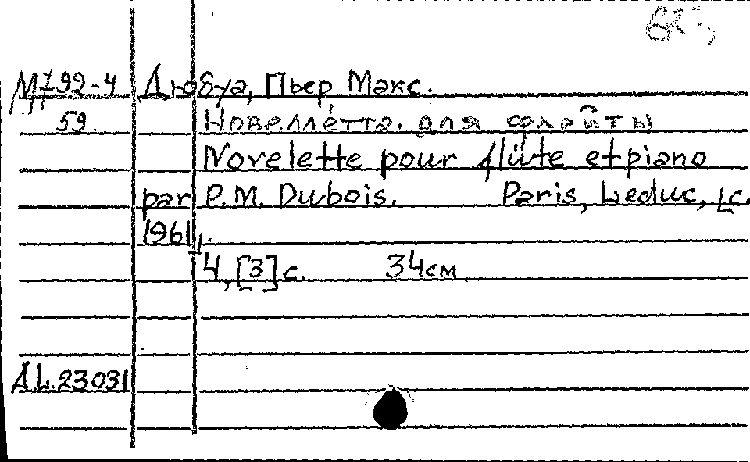 М 192-4 Дюбуа, Пьер Макс.
59 Новеллетта. для флейты
Novelette pour flûte et piano
par P.M. Dubois. Paris, Leduc, [c.
1961].
4, [3] с. 34 см
A.L.23031